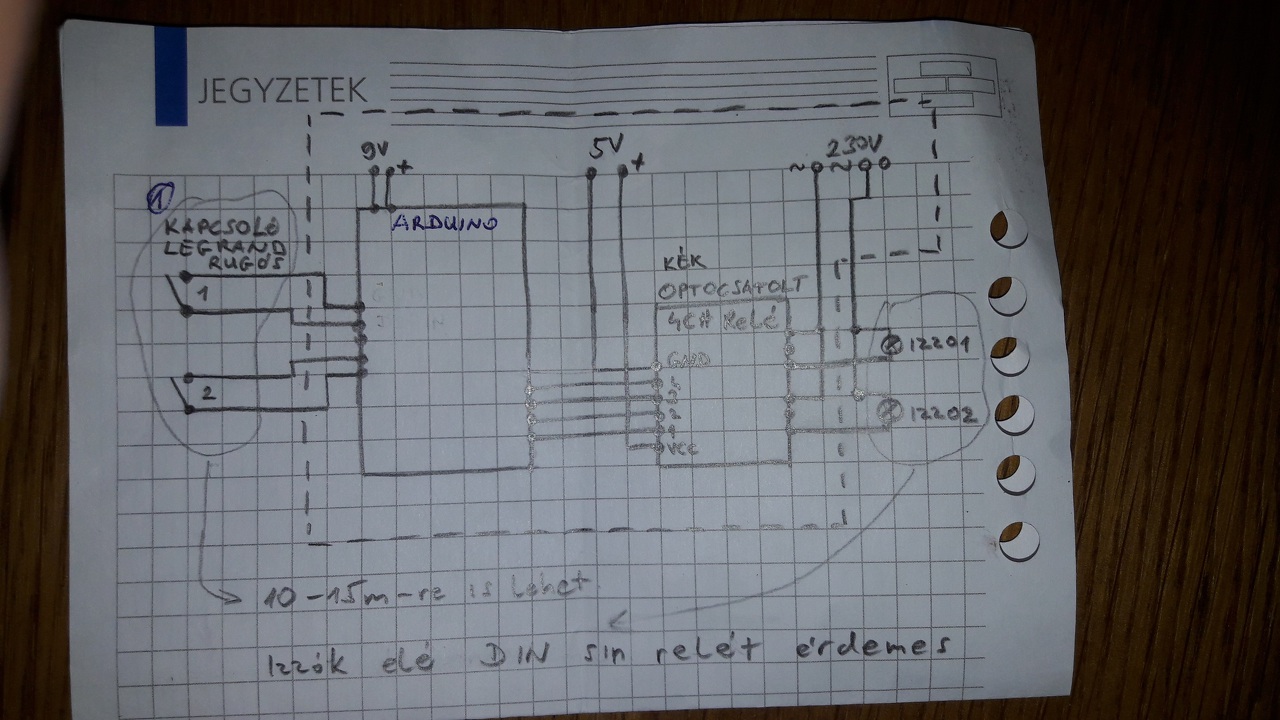 JEGYZETEK
9V
+
5V
+
~ ~ 230V
1
KAPCSOLÓ
LEGRAND
RUGÓS
1
2
ARDUINO
KÉK
OPTOCSATOLT
4CH Relé
GND
3
2
1
VCC
IZZO1
IZZO2
10-15m-re is lehet
Izzók elé DIN sin relét érdemes